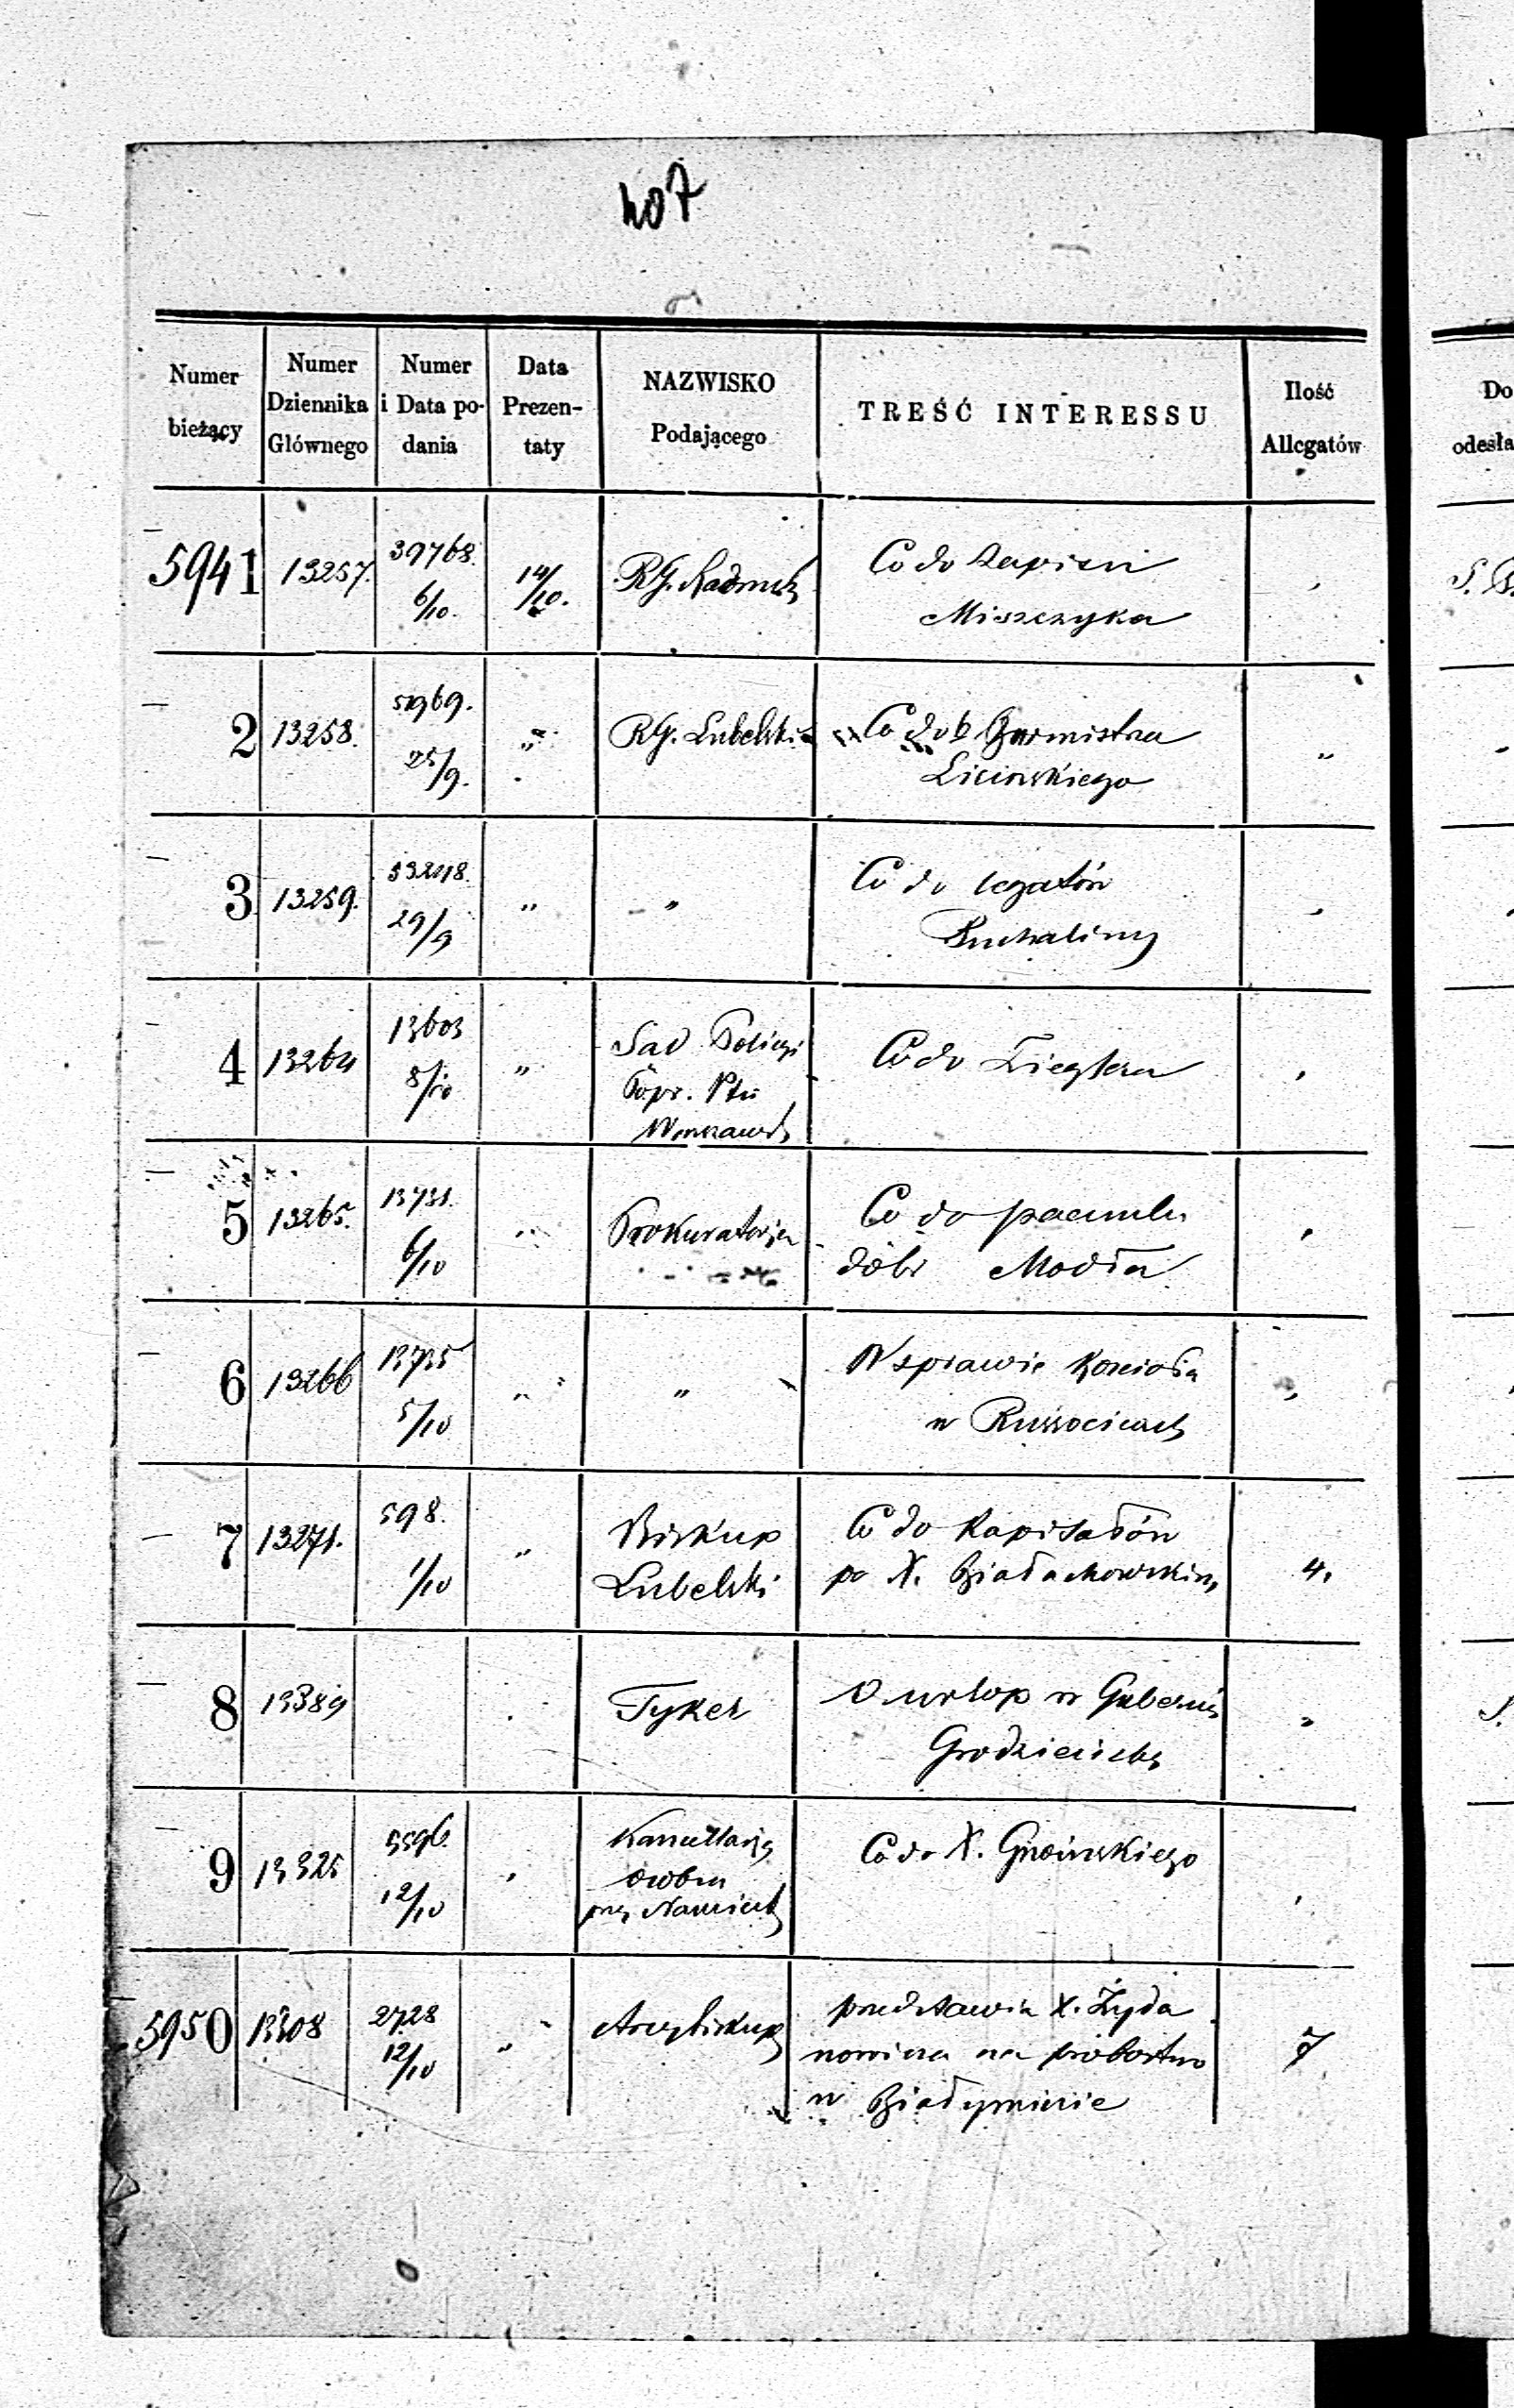 407
Numer bieżący
Numer Dziennika Głównego
Numer i Data podania
Data Prezentaty
NAZWISKO Podającego
TREŚĆ INTERESSU
Ilość Allegatów
Do
odesła
5941 13257. 39768. 6/10. 14/10. RG. Radomsk Co do
Miszczyka
2 13258. 25/9. " RG. Lubelski Co do b Burmistrza "
Lisieckiego
3 13259. 29/9 " " Co do legatów
4 13264 13603 8/10 " Sąd Policyi Co do Zieglera
Popr. Ptu
Warszaws
5 13265. 13731. 6/10 " Prokuratorja Co do
dóbr Modła
6 13266 13735 5/10 " " W sprawie Kościoła
w Russocicach
7 13271. 598. 1/10 " Biskup Co do Kapitałów 4.
Lubelski po X. Białachowskim
8 13389 Tyker O urlop w Gubernii
Grodzieńską
9 13325 5596 12/10 Kancellarja Co do X. Gnoińskiego
osobna
przy Namiest
5950 13308 2728 12/10 " Arcybiskup przedstawia X. Żyda 7
nowicza na probostwo
w Białyninie